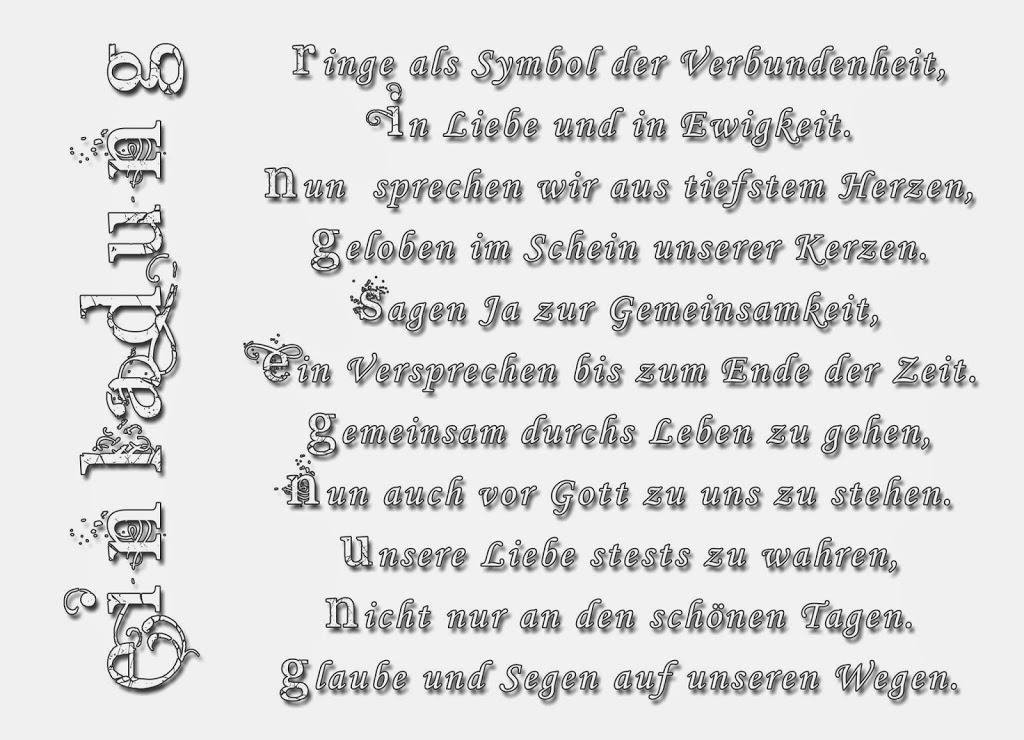 einladung
ringe als Symbol der Verbundenheit,
in Liebe und in Ewigkeit.
nun sprechen wir aus tiefstem Herzen,
geloben im Schein unserer Kerzen.
sagen Ja zur Gemeinsamkeit,
ein Versprechen bis zum Ende der Zeit.
gemeinsam durchs Leben zu gehen,
nun auch vor Gott zu uns zu stehen.
unsere Liebe stests zu wahren,
nicht nur an den schönen Tagen.
glaube und Segen auf unseren Wegen.